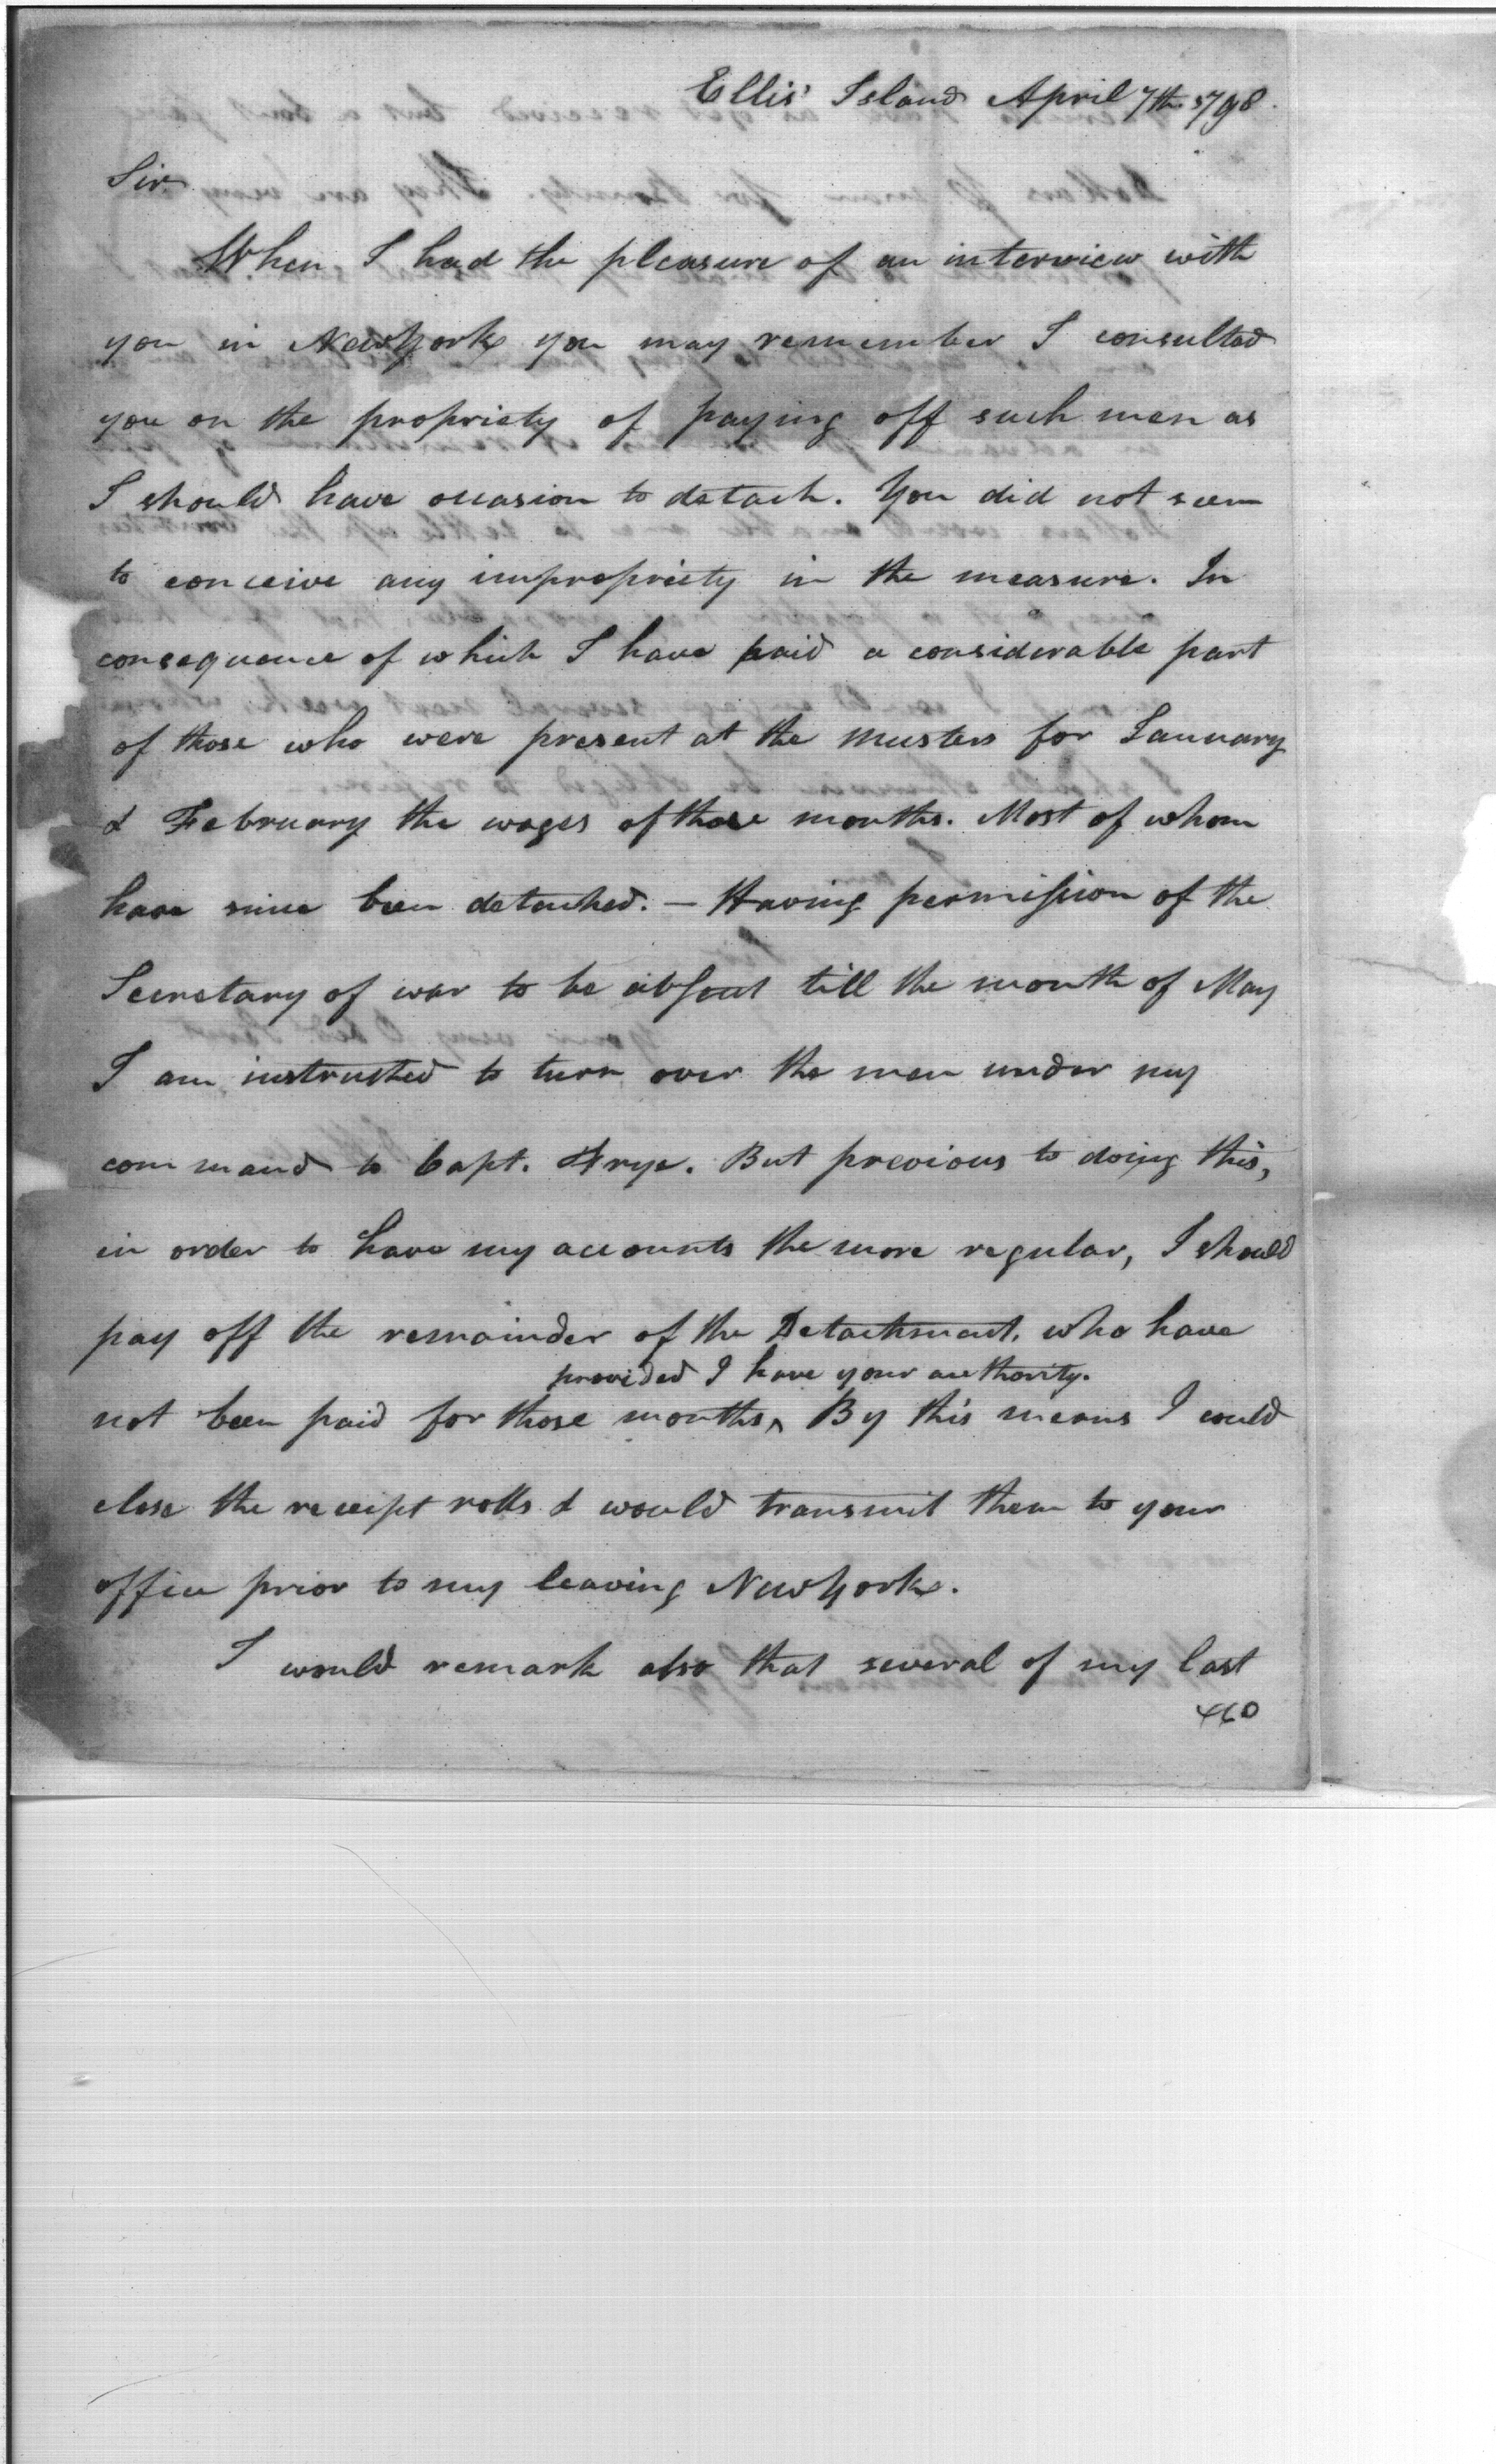 Ellis' Island April 7th 1798.
Sir
When I had the pleasure of an interview with
you in New York you may remember I consulted
you on the propriety of paying off such men as
I should have occasion to detach. You did not seem
to conceive any impropriety in the measure. In
consequence of which I have paid a considerable part
of those who were present at the musters for January
& February the wages of those months. Most of whom
have since been detached. — Having permission of the
Secretary of war to be absent till the month of May
I am instructed to turn over the men under my
command to Capt. Frye. But previous to doing this,
in order to have my accounts the more regular, I should
pay off the remainder of the Detachment. who have
provided I have your authority.
not been paid for those months‸ By this means I could
close the receipt rolls & would transmit them to your
office prior to my leaving New York.
I would remark also that several of my last
460